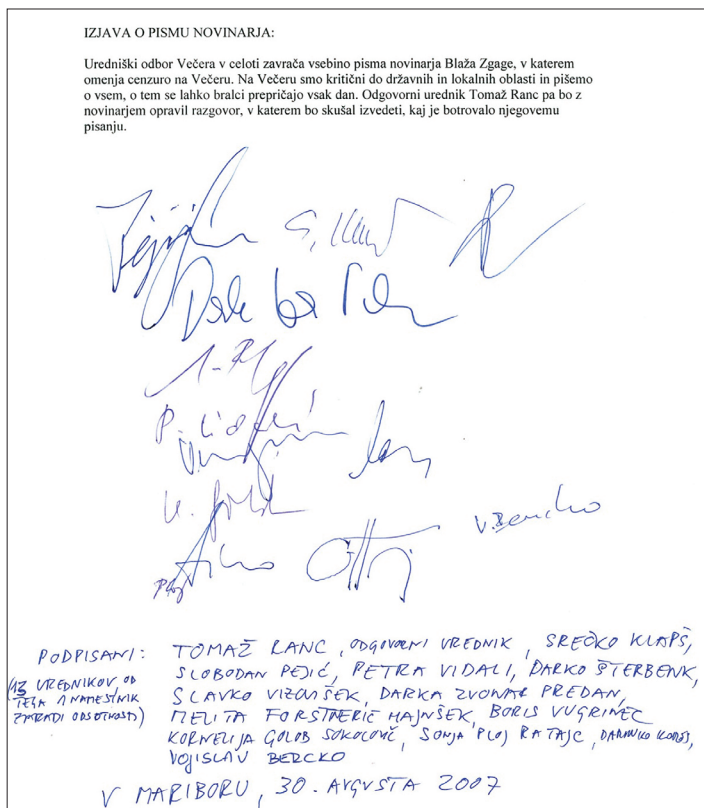 IZJAVA O PISMU NOVINARJA:
Uredniški odbor Večera v celoti zavrača vsebino pisma novinarja Blaža Zgage, v katerem
omenja cenzuro na Večeru. Na Večeru smo kritični do državnih in lokalnih oblasti in pišemo
o vsem, o tem se lahko bralci prepričajo vsak dan. Odgovorni urednik Tomaž Ranc pa bo z
novinarjem opravil razgovor, v katerem bo skušal izvedeti, kaj je botrovalo njegovemu
pisanju.
V. Bercko
PODPISANI: TOMAŽ RANC, ODGOVORNI UREDNIK, SREČKO KLAPŠ,
(13 UREDNIKOV OD SLOBODAN PEJIĆ, PETRA VIDALI, DARKO ŠTERBENK,
TEGA 1 NAMESTNIK SLAVKO VIZOVIŠEK, DARKA ZVONAR PREDAN,
ZARADI ODSOTNOSTI) MELITA FORSTNERIČ HAJNŠEK, BORIS VUGRINEC
KORNELIJA GOLOB SOKOLOVIČ, SONJA PLOJ RATAJC,
VOJISLAV BERCKO
V MARIBORU, 30. AVGUSTA 2007